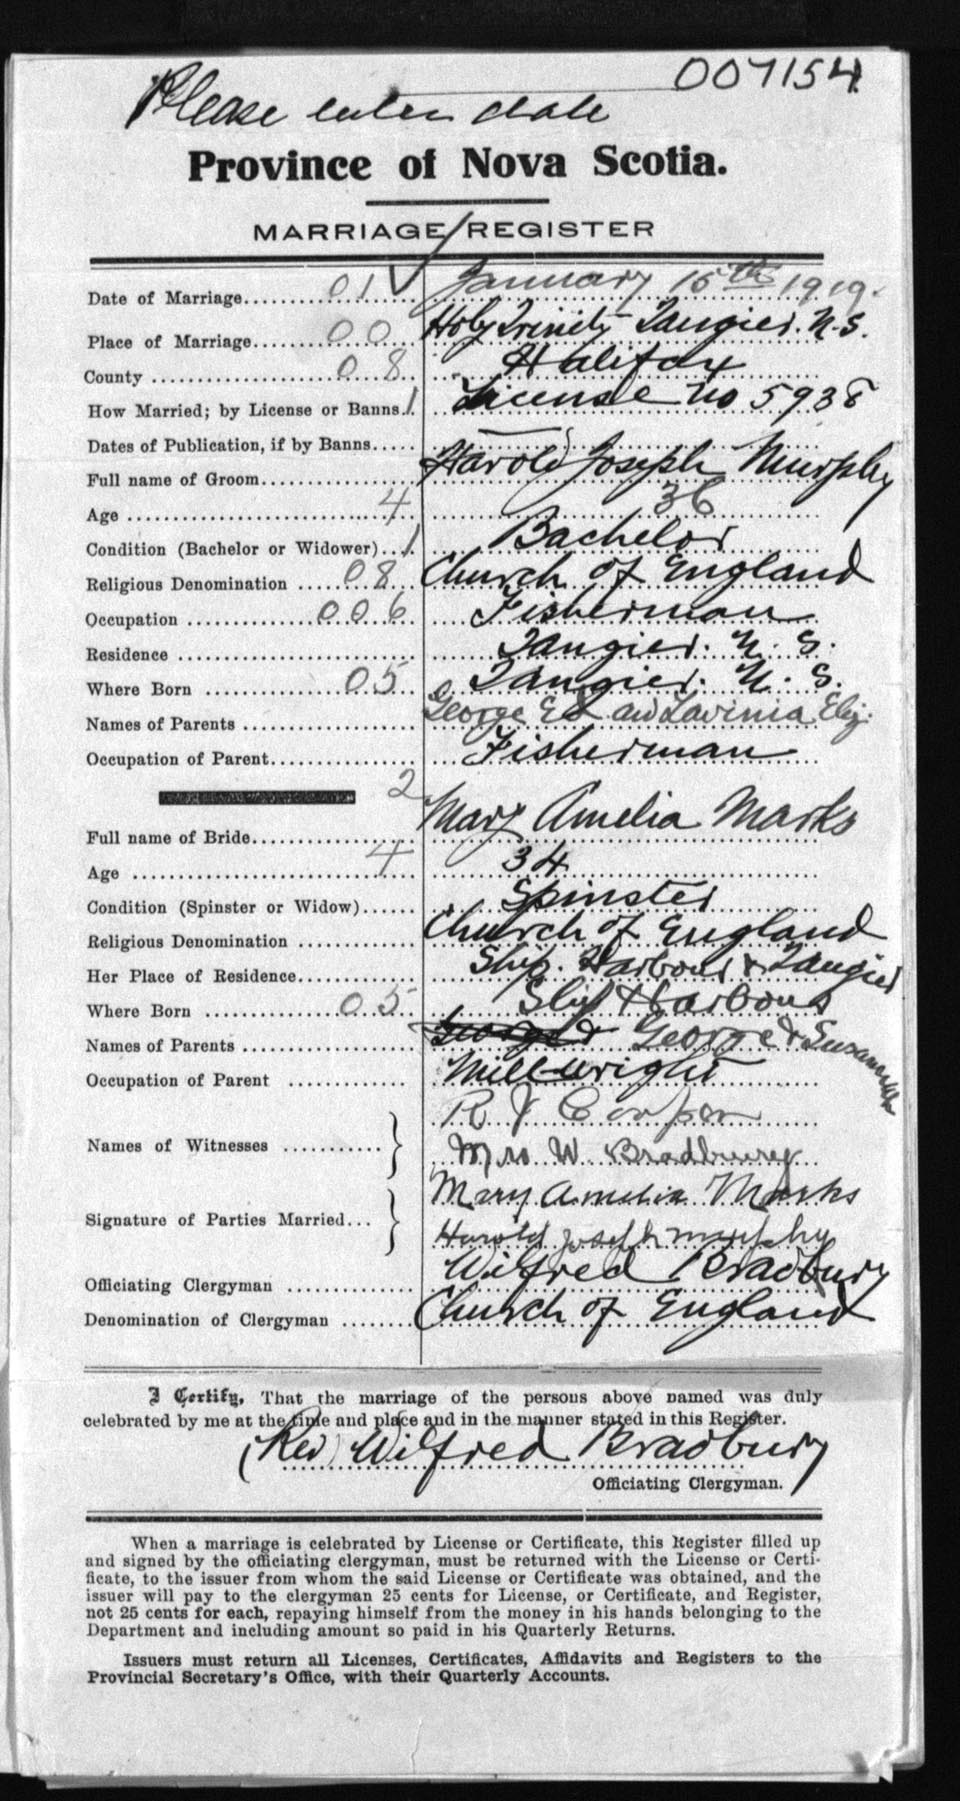 007154
Please enter date
Province of Nova Scotia.
MARRIAGE REGISTER
Date of Marriage 01 January 15th 1919.
Place of Marriage 00 Holy Trinity Tangier. N.S.
County 08 Halifax
How Married; by License or Banns 1 License No 5938
Dates of Publication, if by Banns
Full name of Groom Harold Joseph Murphy
Age 4 36
Condition (Bachelor or Widower) 1 Bachelor
Religious Denomination 08 Church of England
Occupation 006 Fisherman
Residence Tangier. N. S.
Where Born 05 Tangier. N. S.
Names of Parents George Ed and Lavinia Eliz.
Occupation of Parent Fisherman
2
Full name of Bride Mary Amelia Marks
Age 4 34
Condition (Spinster or Widow) Spinster
Religious Denomination Church of England
Her Place of Residence Ship. Harbour & Tangier
Where Born 05 Ship Harbour
Names of Parents George & Susannah
Occupation of Parent Millwright
Names of Witnesses R J Cooper
Mrs W. Bradbury
Signature of Parties Married Mary Amelia Marks
Harold Joseph Murphy
Officiating Clergyman Wilfred Bradbury
Denomination of Clergyman Church of England
I Certify, That the marriage of the persons above named was duly
celebrated by me at the time and place and in the manner stated in this Register.
(Rev) Wilfred Bradbury
Officiating Clergyman.
When a marriage is celebrated by License or Certificate, this Register filled up
and signed by the officiating clergyman, must be returned with the License or Certi-
ficate, to the issuer from whom the said License or Certificate was obtained, and the
issuer will pay to the clergyman 25 cents for License, or Certificate, and Register,
not 25 cents for each, repaying himself from the money in his hands belonging to the
Department and including amount so paid in his Quarterly Returns.
Issuers must return all Licenses, Certificates, Affidavits and Registers to the
Provincial Secretary's Office, with their Quarterly Accounts.